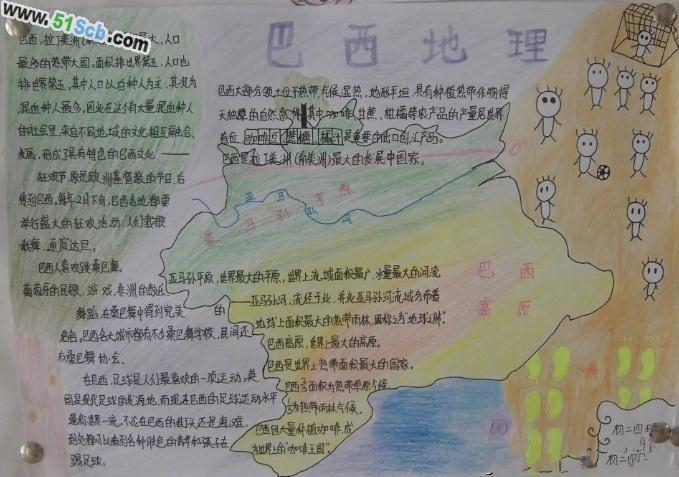 www.51Scb.com
巴西地理
最大,人口
最多的热带大国,面积排世界第五,人口也
排世界第五,其中人口以白种人为主,其次为
混血种人最多,因此在这个有大量混血种人
的社会里,来自不同地域的文化相互融合、
发展,形成了具有特色的巴西文化
狂欢节原是欧洲基督教的节日,后
传到巴西,每年2月下旬,巴西各地都要
举行盛大的狂欢活动,人们载歌
载舞,通宵达旦。
巴西人喜欢跳桑巴舞。
葡萄牙的民歌、游戏,非洲的鼓乐、
舞蹈在桑巴舞中得到完美的
结合。巴西各大城市都有不少桑巴舞学校,民间还
有桑巴舞协会。
在巴西,足球是人们最喜欢的一项运动,英
国是现代足球的发源地,而现在巴西的足球运动水平
是松世界一流,不论在巴西的街头还是
到处都可以看到各种肤色的青年和孩子在
踢足球。
巴西大部分领土位于热带,气候湿热,地形平坦,具有种植热带作物得
天独厚的自然条件,其中咖啡、甘蔗、柑橘等农产品的产量居世界
首位,是重要的出口创汇产品。
巴西是拉丁美洲(南美洲)最大的发展中国家。
0°
亚马孙河
亚马孙平原
亚马孙平原,世界最大的平原,世界上流域面积最广、水量最大的河流
——亚马孙河,流经于此,并在亚马孙河流域分布着
地球上面积最大的热带雨林,因称之为"地球之肺"。
巴西高原,世界上最大的高原。
巴西是世界上热带面积最大的国家。
巴西面积为热带草原气候
为热带雨林气候。
巴西因大量种植咖啡,成
为世界上的"咖啡王国"。
巴西
高原
初二四班
初二